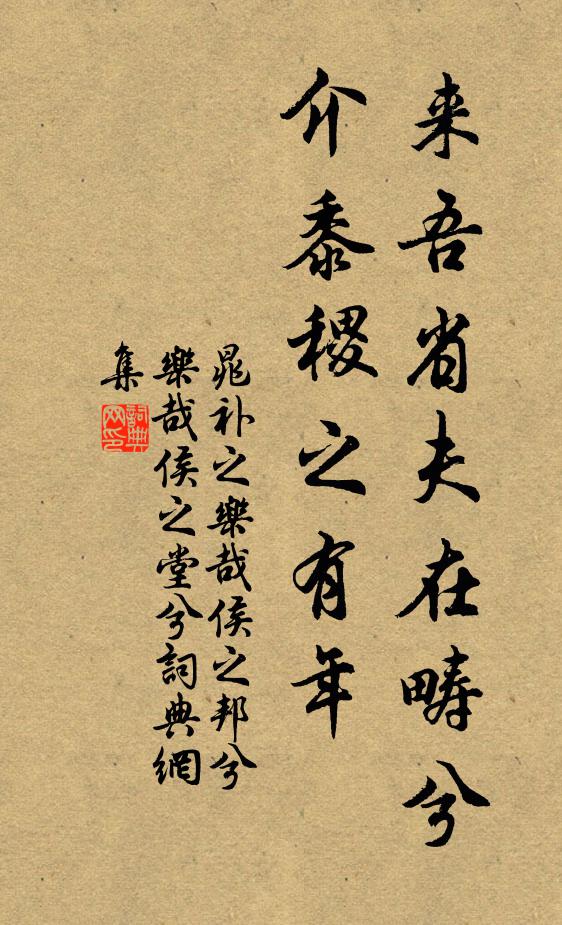 来吾省夫在畴兮
介黍稷之有年
晁补之樂哉侯之邦兮
樂哉侯之堂兮詞典網
集
詞典
网印